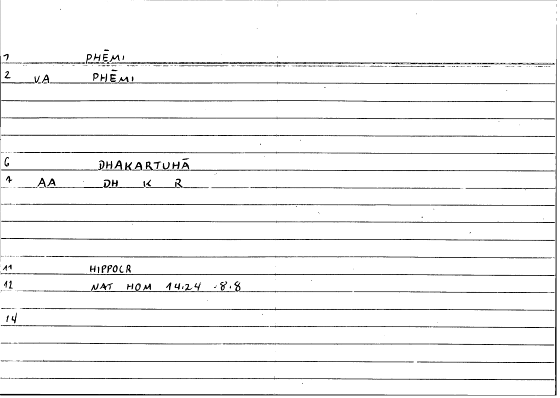 1 PHĒMI
2 VA PHĒMI
6 DHAKARTUHĀ
7 AA DH K R
11 HIPPOCR
12 NAT HOM 14.24 .8.8
14